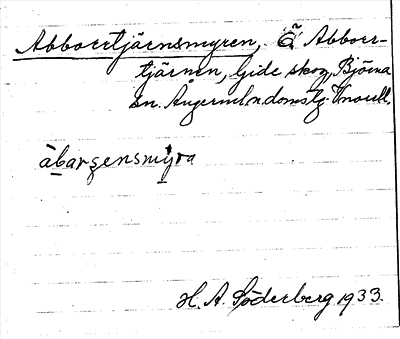 Abborrtjärnsmyren, Ö Abborr-
tjärnen, Gide skog, Björna
sn. Ångerml. n. domstg.
àbarʂensmyra
H. A. Söderberg 1933.